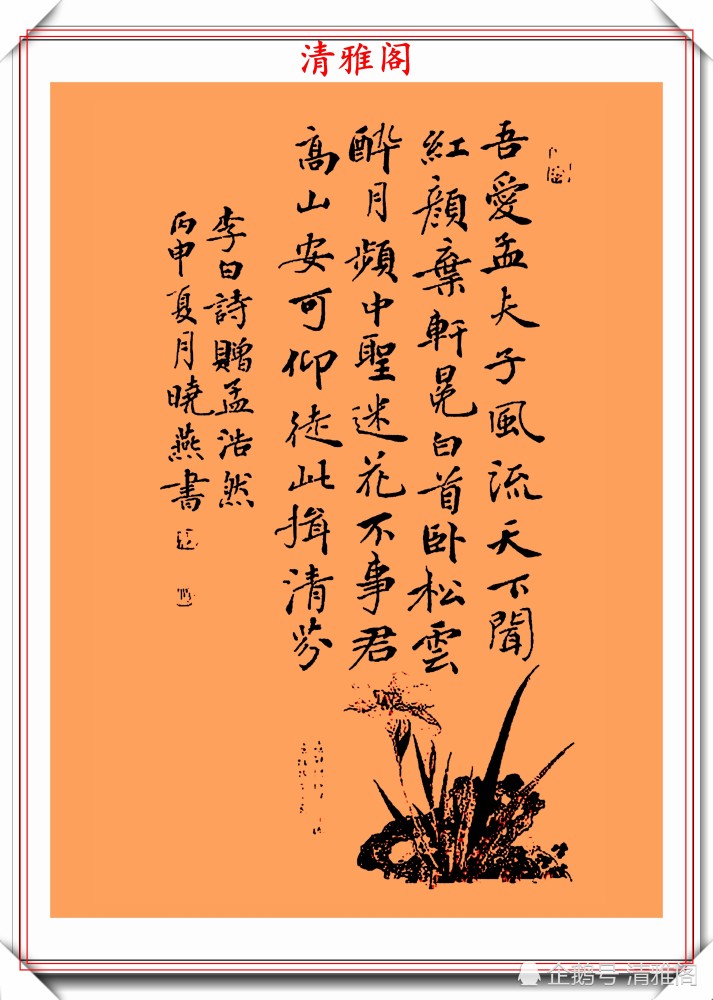 清雅阁
吾愛孟夫子風流天下聞
紅顏棄軒冕白首卧松雲
醉月頻中聖迷花不事君
高山安可仰徒此揖清芬
李白詩贈孟浩然
丙申夏月曉燕書
企鹅号 清雅阁